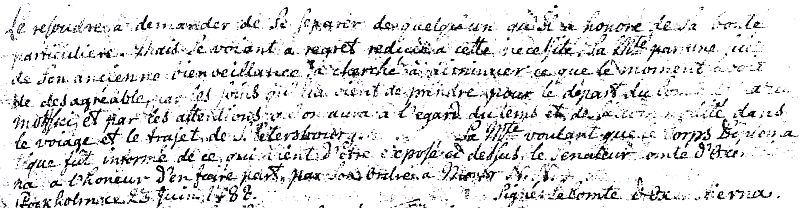 Se resoudre à demander de se separer de quelqu'un qu'il a honoré de sa bonté
particuliere. Mais se voiant a regret reduite a cette necessité, Sa Mté par une
de son ancienne bienveillance a cherché a diminuer ce que le moment avoit
de desagréable par les soins qu'elle vient de prendre pour le départ du
et par les attentions qu'on aura à l'egard du tems et de sa commodité dans
le voiage et le trajet de St Petersbourg. Sa Mté voulant que le Corps
que fut informé de ce qui vient d'être exposé ci dessus, le Senateur Comte d'Oxen
na a l'honneur d'en faire part par son ordre à
Stockholm ce 23 Juin 1788. Signé Le Comte Oxenstierna.